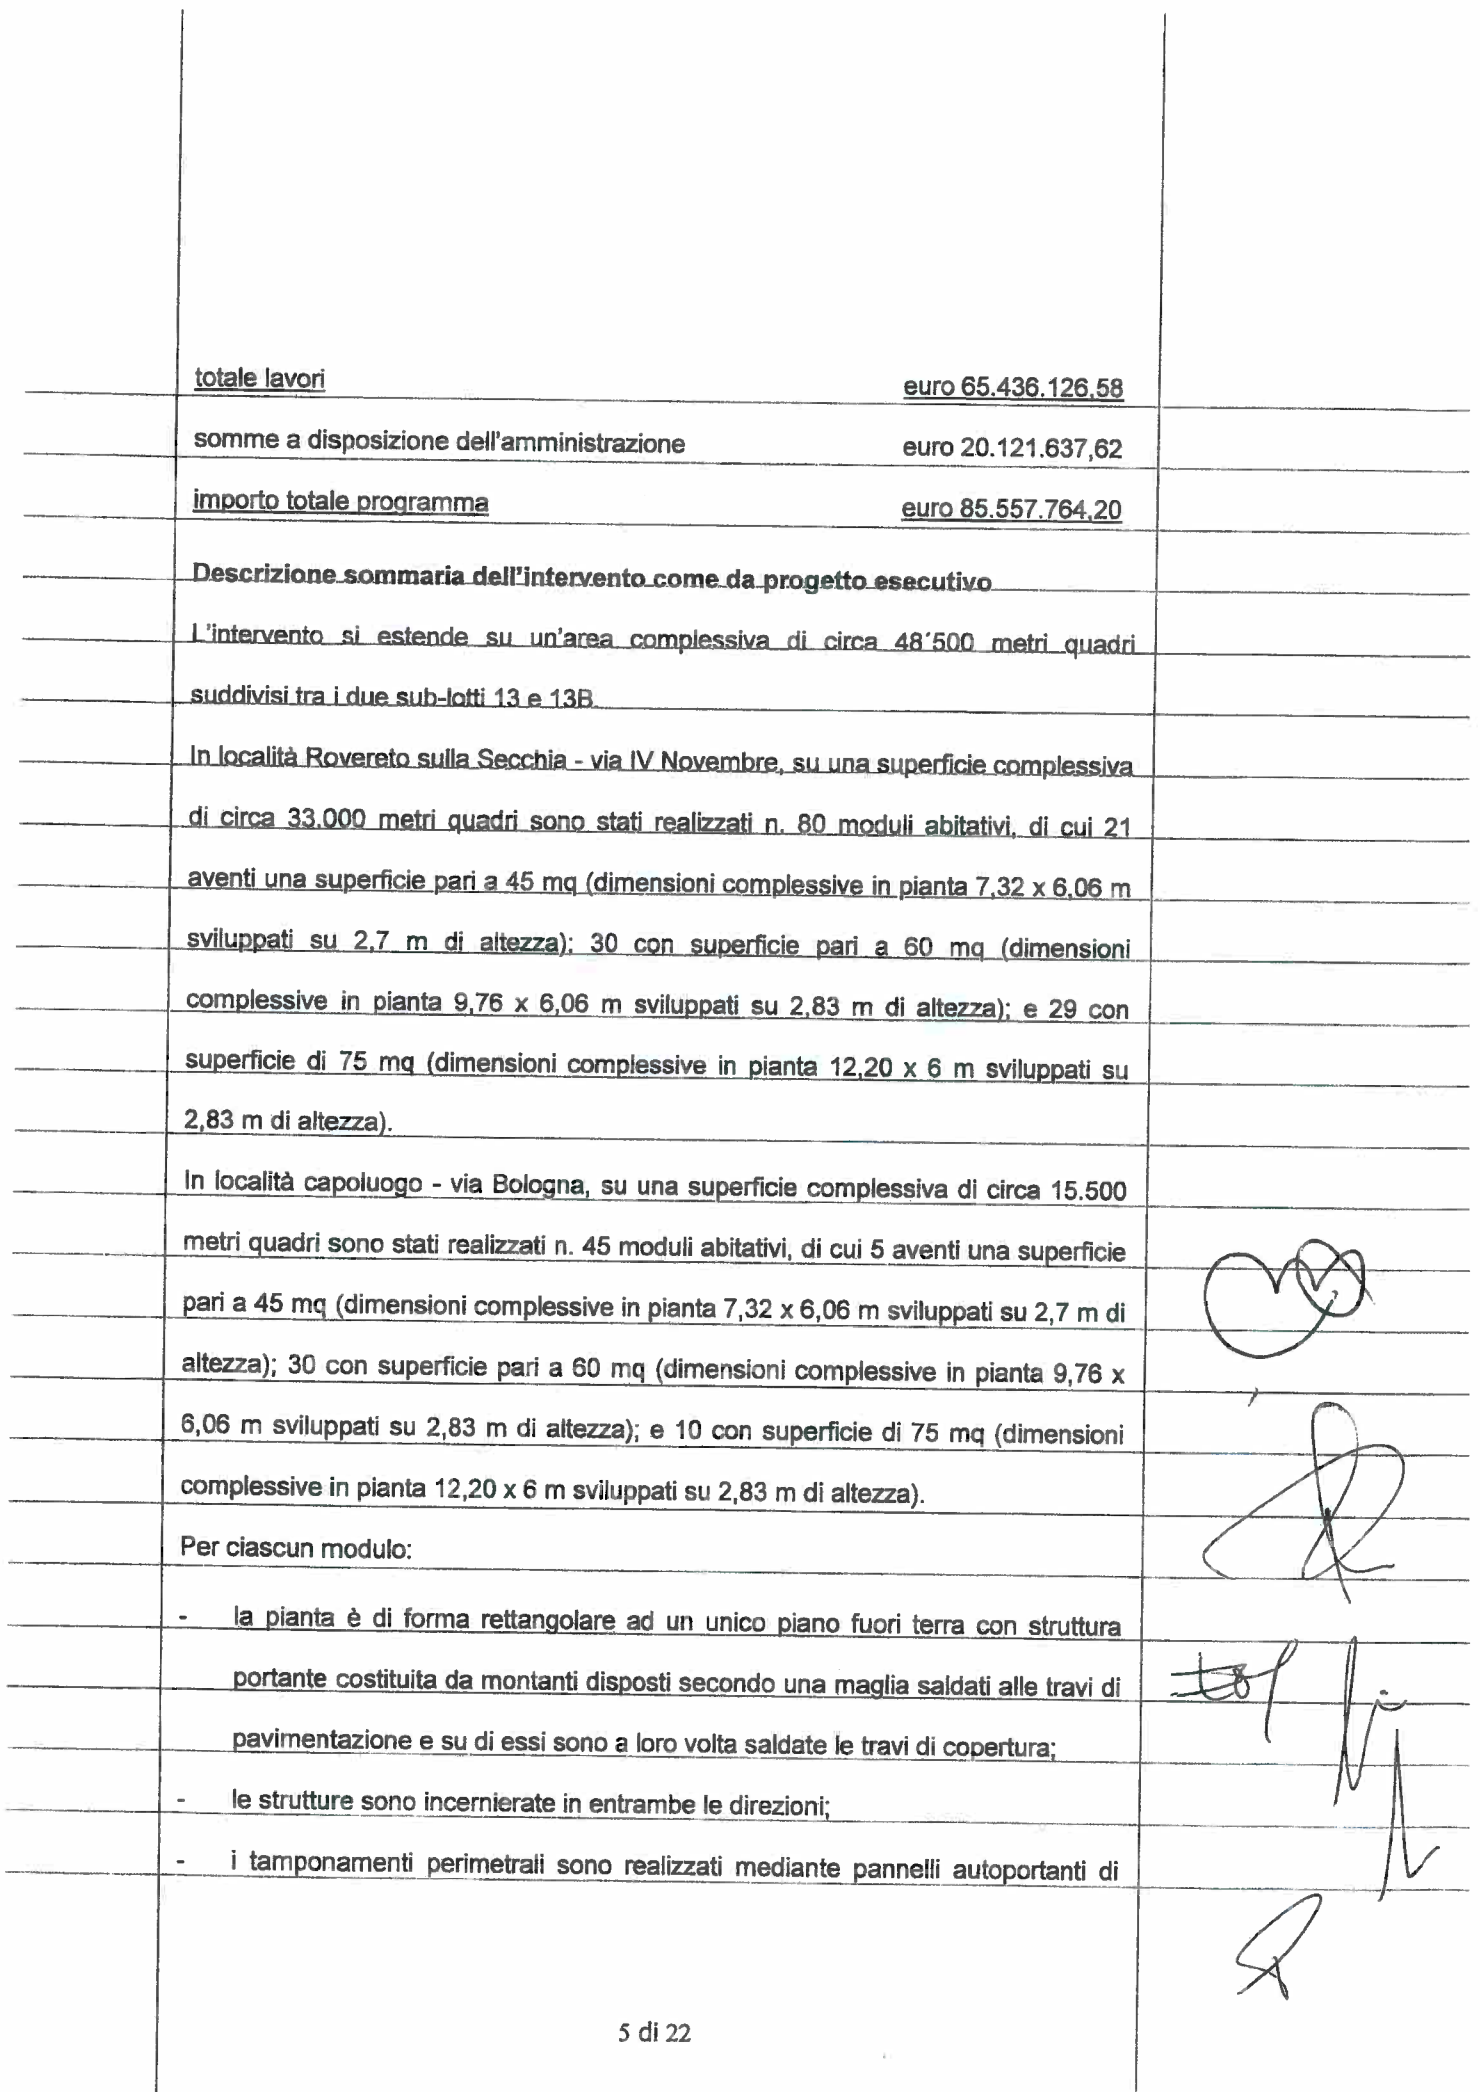 totale lavori euro 65.436.126,58
somme a disposizione dell'amministrazione euro 20.121.637,62
importo totale programma euro 85.557.764,20
Descrizione sommaria dell'intervento come da progetto esecutivo
L'intervento si estende su un'area complessiva di circa 48'500 metri quadri
suddivisi tra i due sub-lotti 13 e 13B.
In località Rovereto sulla Secchia - via IV Novembre, su una superficie complessiva
di circa 33.000 metri quadri sono stati realizzati n. 80 moduli abitativi, di cui 21
aventi una superficie pari a 45 mq (dimensioni complessive in pianta 7,32 x 6,06 m
sviluppati su 2,7 m di altezza); 30 con superficie pari a 60 mq (dimensioni
complessive in pianta 9,76 x 6,06 m sviluppati su 2,83 m di altezza); e 29 con
superficie di 75 mq (dimensioni complessive in pianta 12,20 x 6 m sviluppati su
2,83 m di altezza).
In località capoluogo - via Bologna, su una superficie complessiva di circa 15.500
metri quadri sono stati realizzati n. 45 moduli abitativi, di cui 5 aventi una superficie
pari a 45 mq (dimensioni complessive in pianta 7,32 x 6,06 m sviluppati su 2,7 m di
altezza); 30 con superficie pari a 60 mq (dimensioni complessive in pianta 9,76 x
6,06 m sviluppati su 2,83 m di altezza); e 10 con superficie di 75 mq (dimensioni
complessive in pianta 12,20 x 6 m sviluppati su 2,83 m di altezza).
Per ciascun modulo:
- la pianta è di forma rettangolare ad un unico piano fuori terra con struttura
portante costituita da montanti disposti secondo una maglia saldati alle travi di
pavimentazione e su di essi sono a loro volta saldate le travi di copertura;
- le strutture sono incernierate in entrambe le direzioni;
- i tamponamenti perimetrali sono realizzati mediante pannelli autoportanti di
5 di 22